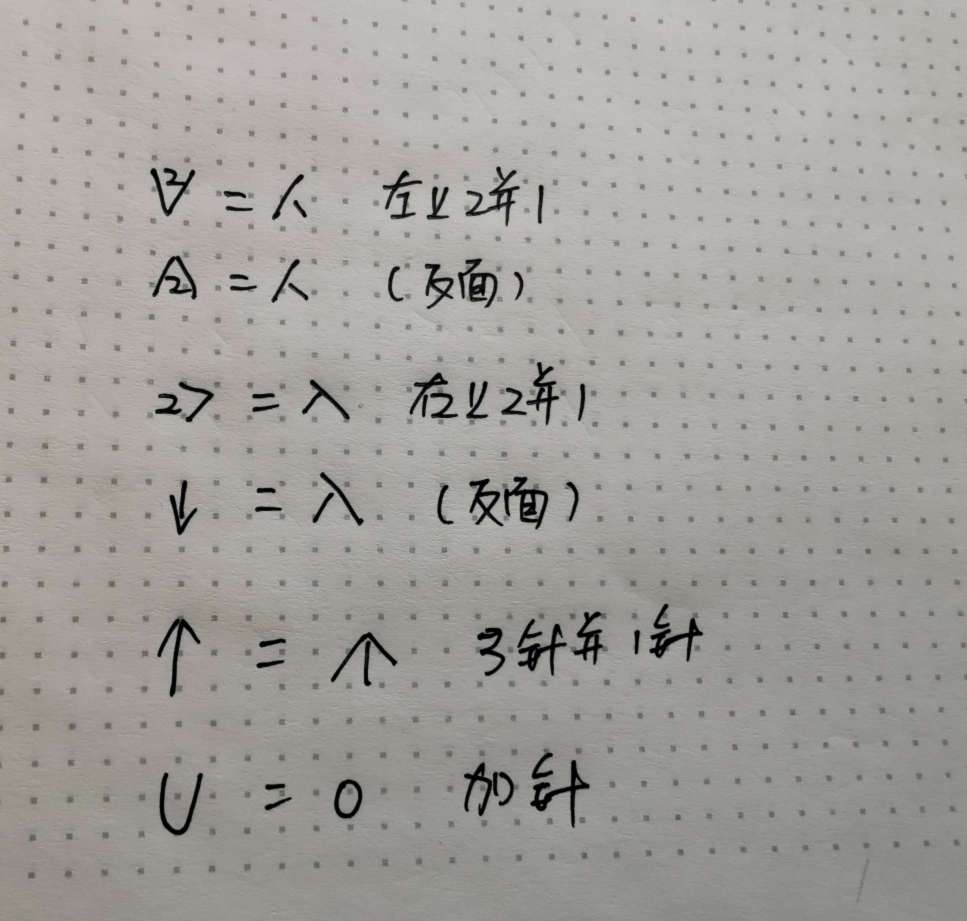 V2 = 人 左上2并1
A2 = 人 (反面)
2> = 入 右上2并1
↓ = 入 (反面)
↑ = 个 3针并1针
U = O 加针